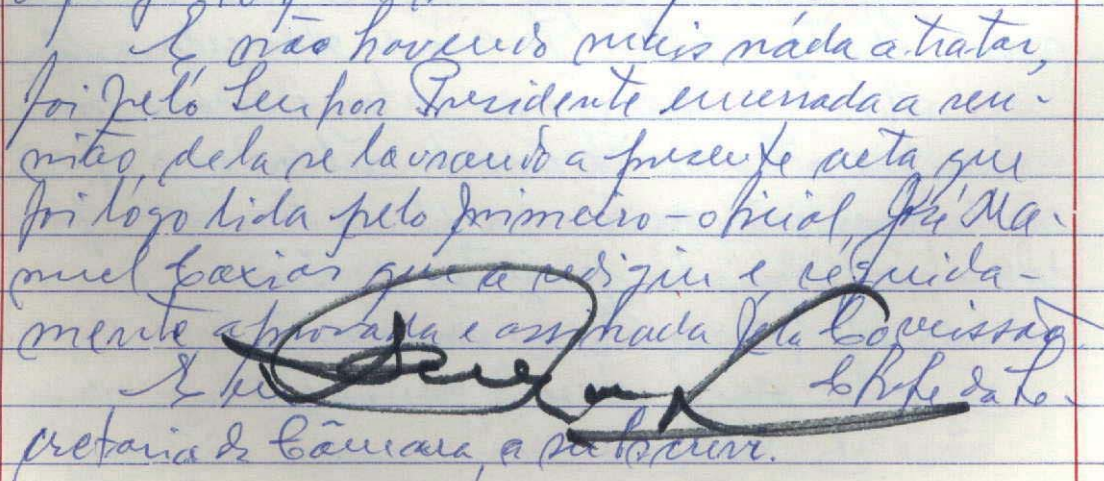 E não havendo mais nada a tratar,
foi pelo Senhor Presidente encerrada a reu-
nião, dela se lavrando a presente acta que
foi lógo lida pelo primeiro-oficial, José Ma-
nuel Caxias que a redigiu e seguida-
mente aprovada e assinada pela Comissão.
E eu Chefe da Se-
cretaria da Câmara, a subscrevi.